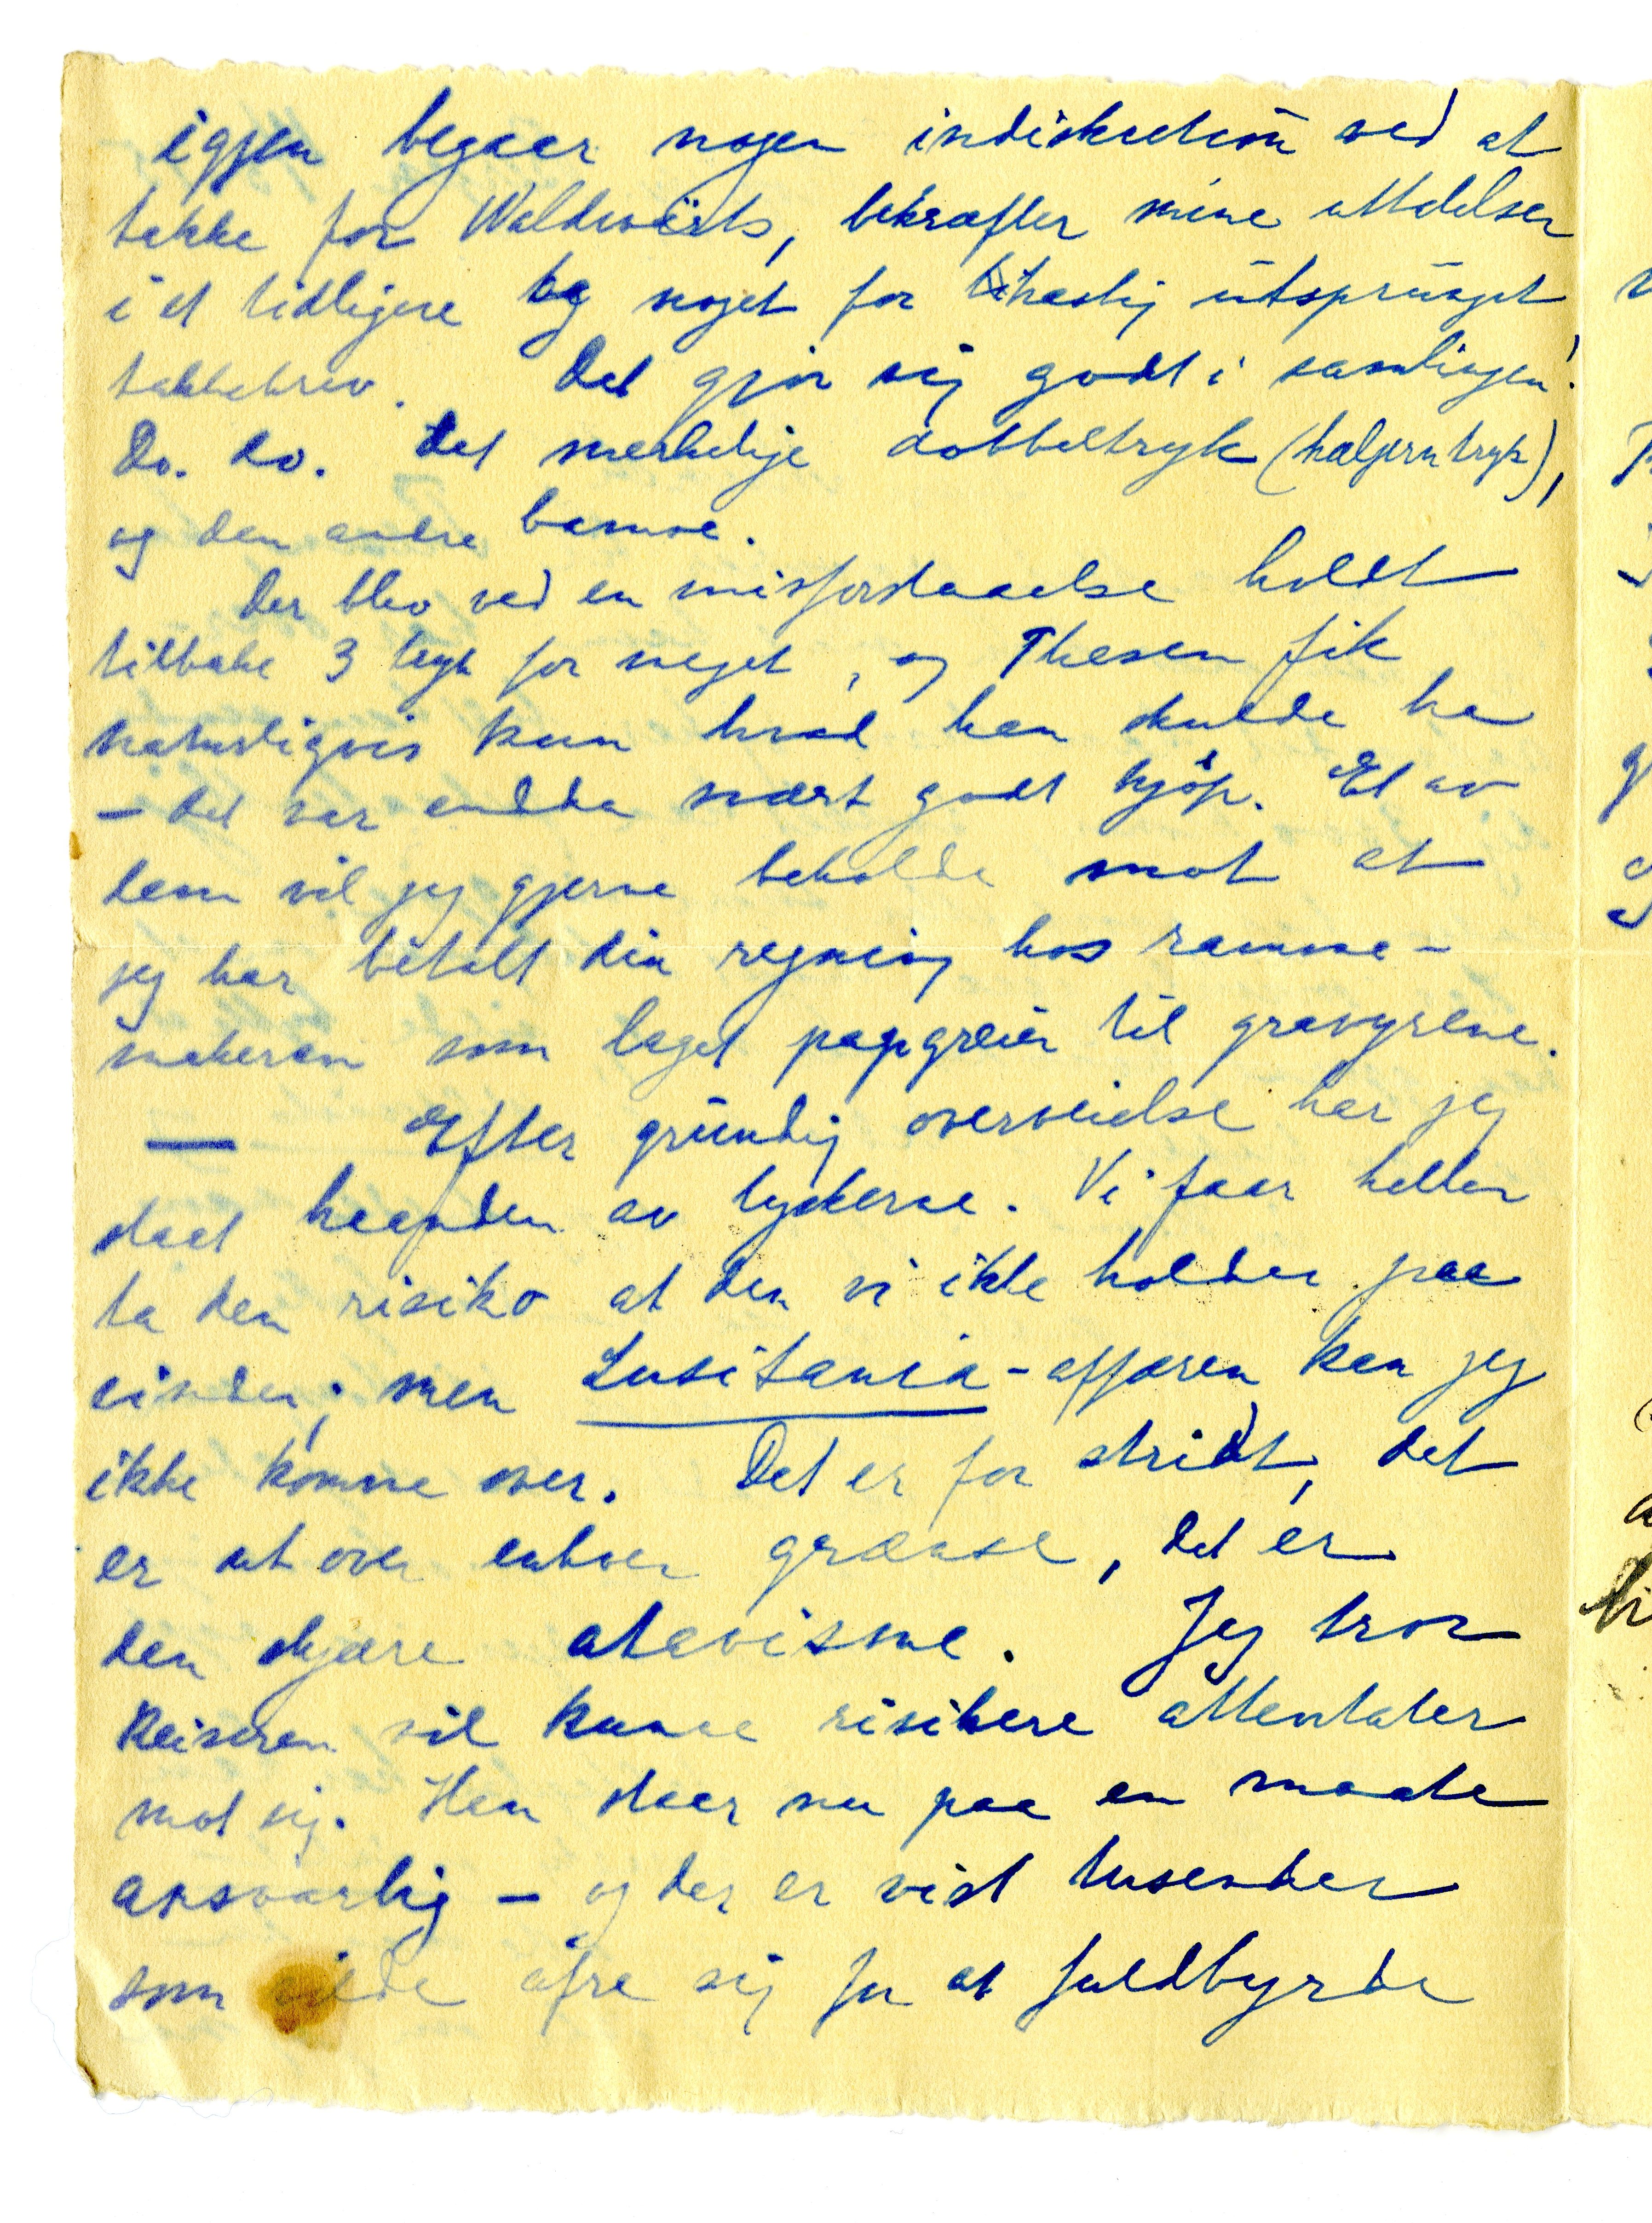 igjen begaar nogen indiskretion ved at
takke for Waldwärts, bekræfter mine uttalelser
i et tidligere og noget for hastig utsprunget
takkebrev. Det gjør sig godt i samlingen!
Do. do. det merkelige dobbeltryk (haljerntryk),
og den andre
Der blev ved en misforstaaelse holdt
tilbake 3 tryk for meget, og Thesen fik
naturligvis kun hvad han skulde ha
– det var endda svært godt kjøp. Et av
dem vil jeg gjerne beholde mot at
jeg har betalt din regning hos ramme-
makeren som laget pappgreier til gravyrene.
— Efter grundig overveielse har jeg
slaat haanden av tyskerne. Vi faar heller
ta den risiko at den vi ikke holder paa
vinder; men Lusitania-affæren kan jeg
ikke komme over. Det er for stridt, det
er ut over enhver grænse, det er
den skjære atavisme. Jeg tror
Keiseren vil kunne risikere attentater
mot sig. Han staar nu paa en maate
ansvarlig – og der er vist tusender
som vilde ofre sig for at fuldbyrde